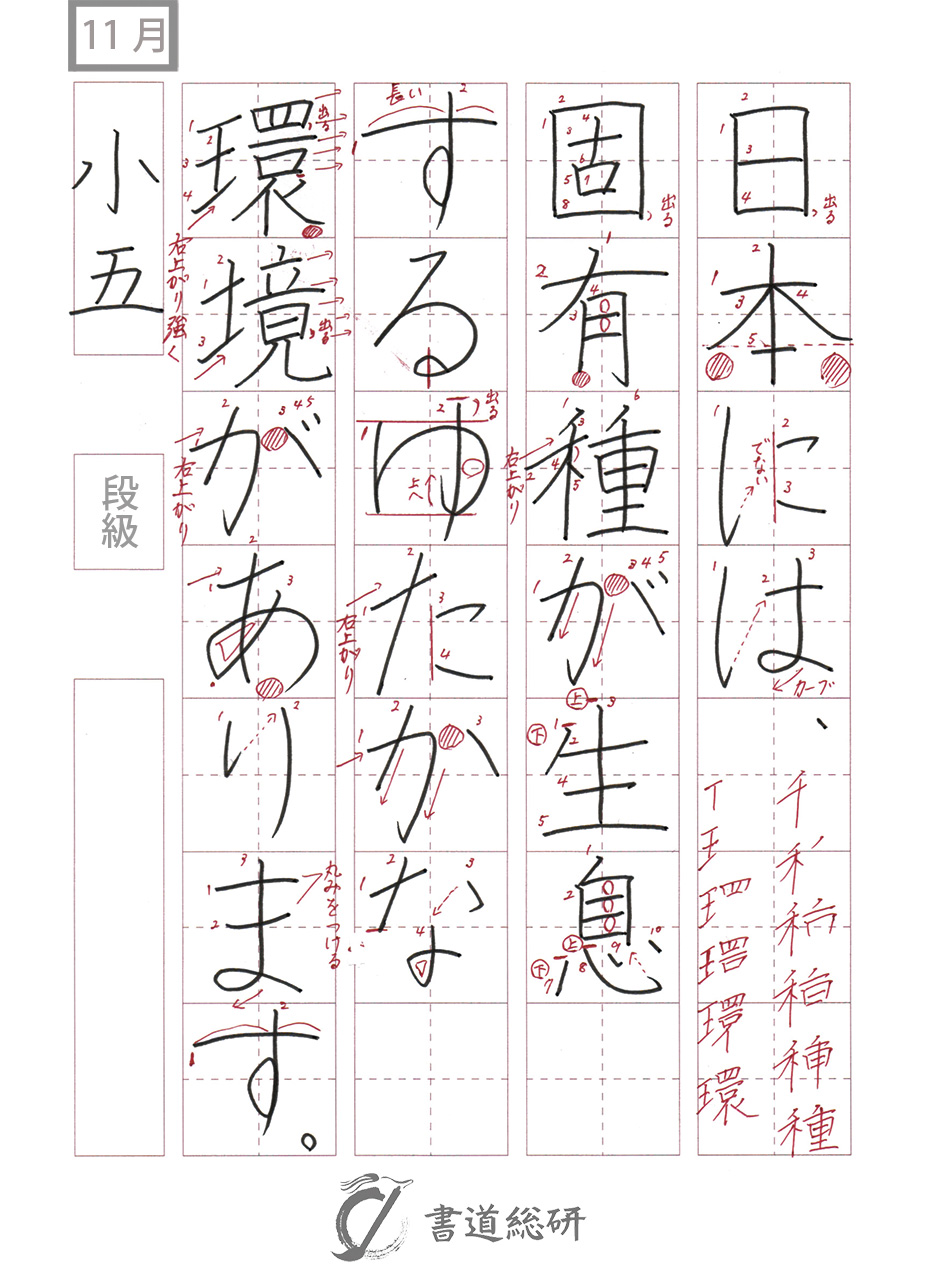 11月
日本には、
固有種が生息
するゆたかな
環境があります。
小五
段級
出る
でない
カーブ
千
禾
種
環
出る
右上がり
長い
出る
上へ
右上がり
出る
右上がり強く
出る
右上がり
丸みをつける
上
下
上
下
書道総研